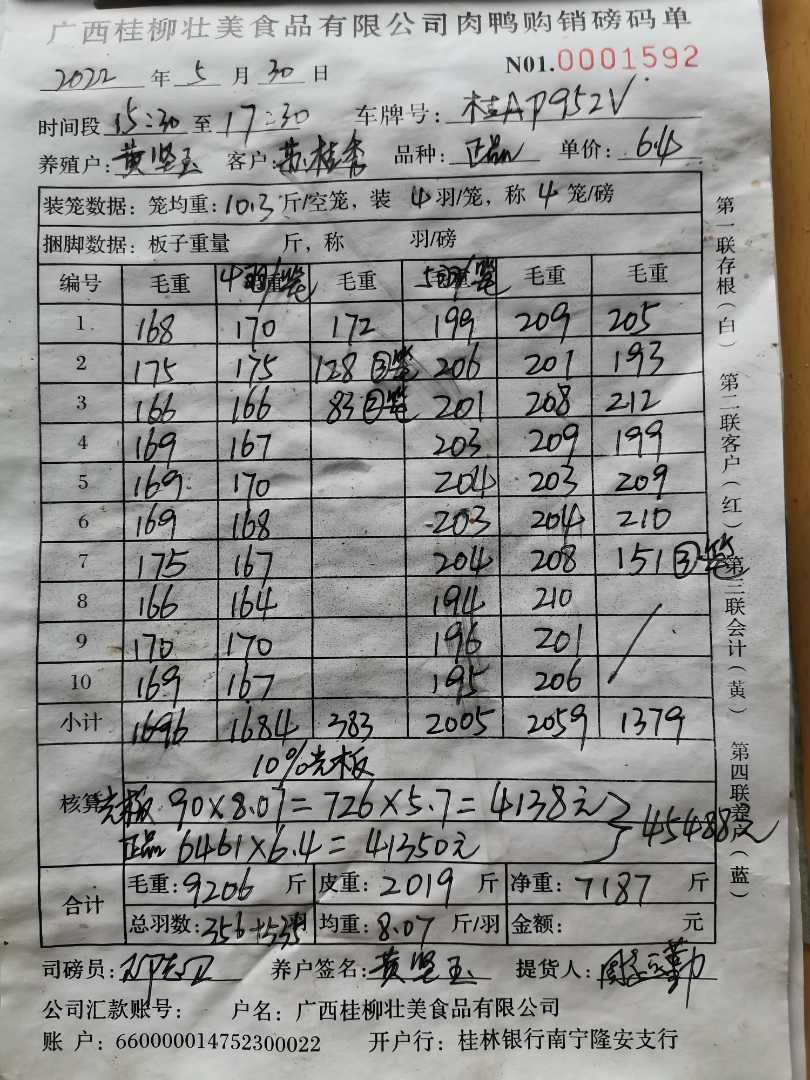 广西桂柳壮美食品有限公司肉鸭购销磅码单
2022 年 5 月 30 日 N01.0001592
时间段 15:30 至 17:30 车牌号: 桂AP952V
养殖户: 黄坚玉 客户: 苏桂秀 品种: 正品 单价: 6.4
装笼数据: 笼均重: 10.3 斤/空笼, 装 4 羽/笼, 称 4 笼/磅
捆脚数据: 板子重量 斤, 称 羽/磅
编号 毛重 4羽/笼 毛重 5羽/笼 毛重 毛重
1 168 170 172 199 209 205
2 175 175 128 ③笼 206 201 193
3 166 166 83 ②笼 201 208 212
4 169 167 203 209 199
5 169 170 204 203 209
6 169 168 203 204 210
7 175 167 204 208 151 ③笼
8 166 164 194 210
9 170 170 196 201
10 169 167 195 206
小计 1696 1684 383 2005 2059 1379
10%壳板
核算 壳板 90×8.07=726×5.7=4138元
正品 6461×6.4=41350元 } 45488元
合计 毛重: 9206 斤 皮重: 2019 斤 净重: 7187 斤
总羽数: 356+535羽 均重: 8.07 斤/羽 金额: 元
司磅员: 养户签名: 黄坚玉 提货人:
公司汇款账号: 户名: 广西桂柳壮美食品有限公司
账 户: 660000014752300022 开户行: 桂林银行南宁隆安支行
第一联存根(白) 第二联客户(红) 第三联会计(黄) 第四联养户(蓝)